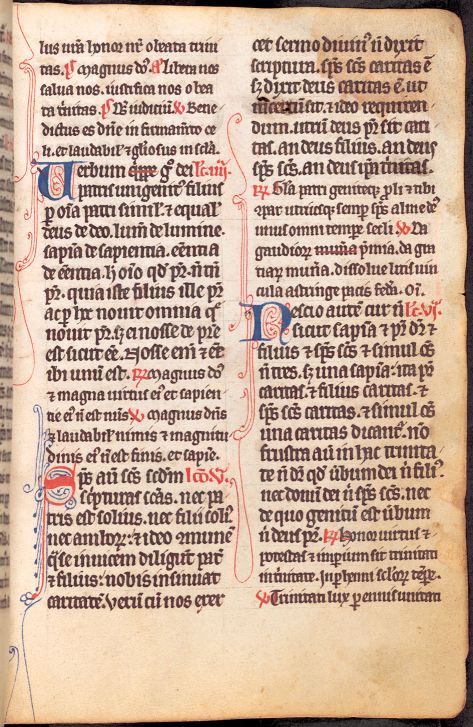 lus vr̄a honor nr̄ o beata trini
tas. p̄s Magnus dn̄s. a Libera nos
salua nos. iustifica nos o bea
ta trinitas. p̄s Ds̄ iudiciū. Bene
dictus es dn̄e in firmam̄to ce
li. et laudabił ⁊ gl̓iosus in sc̄ła.
Uerbum dei lc̄. iiij.
patris unigenit᷒ filius
p oīa patri simił. ⁊ equał.
deus de deo. lum̄ de lumine.
sapīa de sapientia. eēntia
de eēntia. h̓ oīo qd̓ pr̄. n̄ tn̄
pr̄. quia iste filius ille pr̄
ac p h̓ novit omnia q̄
nouit pr̄. sꝫ ei nosse de pre
est sicut eē. Nosse enī ⁊ eē
ibi unū est. ℟ Magnus dn̄s
⁊ magna uirtus ei᷒ et sapien
tie ei᷒ n̄ est nūs. ℣ Magnus dn̄s
⁊ laudabił nimis ⁊ magnitu
dinis ei᷒ n̄ est finis. et sapie.
Sp̄s aū sc̄s scd̄m lc̄o. v.
scripturas sc̄as. nec pa
tris est solius. nec filii soli᷒
nec amboꝝ. ⁊ ideo
q̄ se inuicem diligūt pat̄
⁊ filius. nobis insinuat
caritatē. Verū cū nos exer
cet sermo diuin᷒ n̄ dixit
scriptura. sp̄s sc̄s caritas ē
sꝫ dixit deus caritas ē. ut
incertū sit. ⁊ ideo requiren
dum. utrū deus pr̄ sit cari
tas. an deus filius. an deus
sp̄s sc̄s. an deus ip̄a trinitas.
℟ Gl̓a patri geniteq̄ ꝓli ⁊ tibi
cōpar utriusqꝫ semp sp̄s alme de᷒
unus omni tempr̄e secli ℣ Da
gaudioꝝ p̄mia. da gra
tiaꝝ mun̄a. dissolue litis uin
cula astringe pacis fed̓a. Oī.
Nescio autē cur n̄ lc̄. vj.
sicut sapīa ⁊ pr̄ dr̄ ⁊
filius ⁊ sp̄s sc̄s ⁊ simul oēs
n̄ tres. sꝫ una sapīa. ita pr̄
caritas. ⁊ filius caritas. ⁊
sp̄s sc̄s caritas. ⁊ simul oēs
una caritas dicant᷒. nō
frustra aū in hac trinita
te n̄ dr̄ qd̓ ūbum dei n̄ fili᷒.
nec donū dei n̄ sp̄s sc̄s. nec
de quo genitū est ūbum
n̄ deus pr̄. ℟ Honor uirtus ⁊
potestas ⁊ imp̄ium sit trinitati
in unitate. In phenni scłoꝝ tēpre.
℣ Trinitati lux pennis unitati